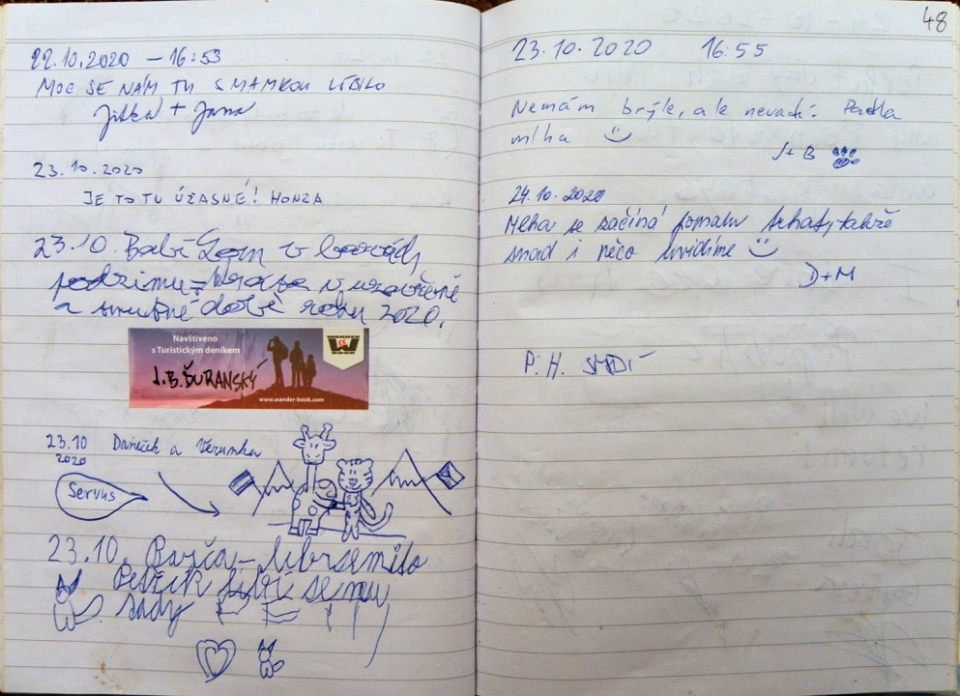 22.10.2020 – 16:53
MOC SE NÁM TU S MAMKOU LÍBILO
Jitka + Jana
23.10.2020
JE TO TU ÚŽASNÉ! HONZA
23.10. Babí v
podzimu
a smutné době roku 2020.
Navštíveno
s Turistickým deníkem
J.B. ŠURANSKÝ
www.wander-book.com
23.10 Daneček a Verunka
2020
Servus
23.10. Barča – líbí se mi to
Petřík líbí se mu
tady
48
23.10.2020 16:55
Nemám brýle, ale nevadí. Padla
mlha
J+B
24.10.2020
Mlha se začíná pomalu trhat, takže
snad i něco uvidíme
D+M
P. H. SMRDÍ